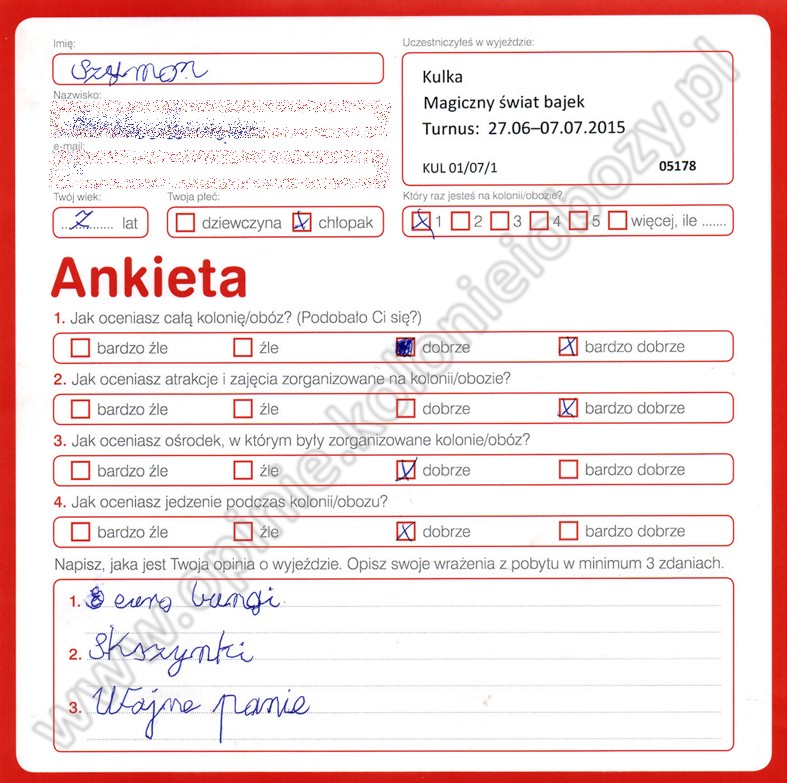 Imię:
Szymon
Nazwisko:
e-mail:
Twój wiek:
7 lat
Twoja płeć:
dziewczyna chłopak
Uczestniczyłeś w wyjeździe:
Kulka
Magiczny świat bajek
Turnus: 27.06–07.07.2015
KUL 01/07/1 05178
Który raz jesteś na kolonii/obozie?
1 2 3 4 5 więcej, ile .......
Ankieta
1. Jak oceniasz całą kolonię/obóz? (Podobało Ci się?)
bardzo źle źle dobrze bardzo dobrze
2. Jak oceniasz atrakcje i zajęcia zorganizowane na kolonii/obozie?
bardzo źle źle dobrze bardzo dobrze
3. Jak oceniasz ośrodek, w którym były zorganizowane kolonie/obóz?
bardzo źle źle dobrze bardzo dobrze
4. Jak oceniasz jedzenie podczas kolonii/obozu?
bardzo źle źle dobrze bardzo dobrze
Napisz, jaka jest Twoja opinia o wyjeździe. Opisz swoje wrażenia z pobytu w minimum 3 zdaniach.
1. euro bungi
2. Skszynki
3. Wajne panie
www.opinie.kolonieiobozy.pl